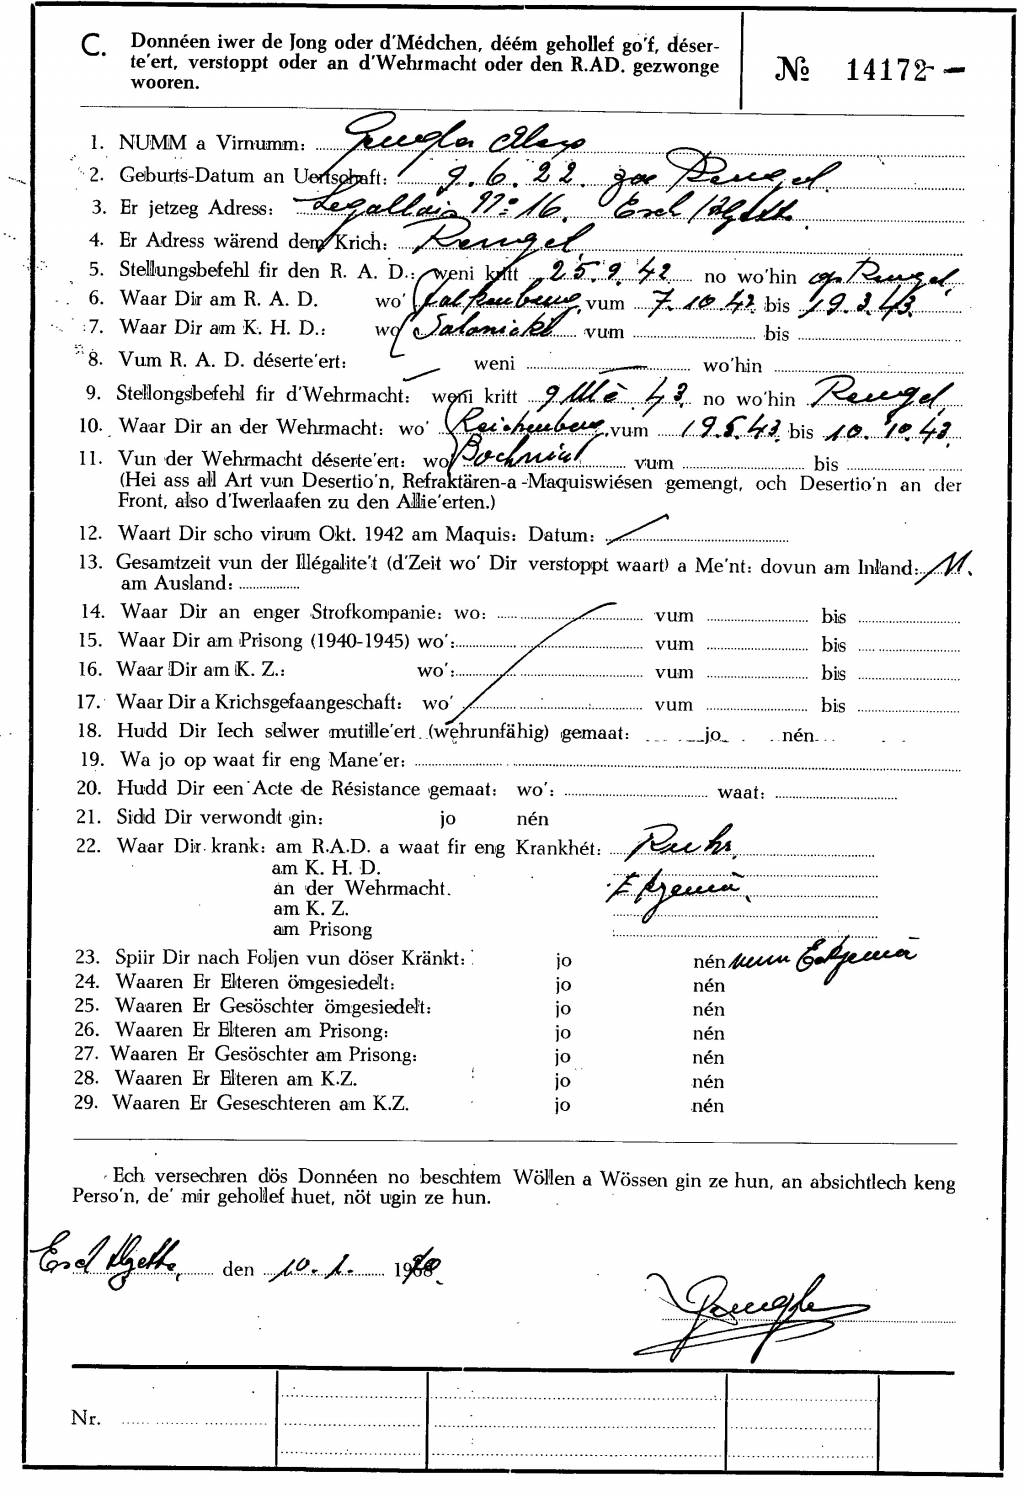 C. Donnéen iwer de Jong oder d'Médchen, déém gehollef go'f, déser-
te'ert, verstoppt oder an d'Wehrmacht oder den R.AD. gezwonge
wooren.
№ 14172-
1. NUMM a Virnumm:
2. Geburts-Datum an Uertschaft: 9. 6. 22. Rëngel.
3. Er jetzeg Adress: Legallais No 16. Esch /
4. Er Adress wärend dem Krich: Rëngel.
5. Stellungsbefehl fir den R. A. D.: weni kritt 25.9.42 no wo'hin Rëngel,
6. Waar Dir am R. A. D. wo' Falkenberg, vum 7.10.42. bis 19.3.43.
7. Waar Dir am K. H. D.: wo' Saloniki vum bis
8. Vum R. A. D. déserte'ert: weni wo'hin
9. Stellongsbefehl fir d'Wehrmacht: weni kritt 9 43. no wo'hin Rëngel,
10. Waar Dir an der Wehrmacht: wo' Reichenberg, vum 19.5.43. bis 10.10.43.
11. Vun der Wehrmacht déserte'ert: wo' vum bis
(Hei ass all Art vun Desertio'n, Refraktären-a-Maquiswiésen gemengt, och Desertio'n an der
Front, also d'Iwerlaafen zu den Allie'erten.)
12. Waart Dir scho virum Okt. 1942 am Maquis: Datum:
13. Gesamtzeit vun der Illégalite't (d'Zeit wo' Dir verstoppt waart) a Me'nt: dovun am Inland: 11.
am Ausland:
14. Waar Dir an enger Strofkompanie: wo: vum bis
15. Waar Dir am Prisong (1940-1945) wo': vum bis
16. Waar Dir am K. Z.: wo': vum bis
17. Waar Dir a Krichsgefaangeschaft: wo' vum bis
18. Hudd Dir Iech selwer mutille'ert (wehrunfähig) gemaat: jo nén
19. Wa jo op waat fir eng Mane'er:
20. Hudd Dir een Acte de Résistance gemaat: wo': waat:
21. Sidd Dir verwondt gin: jo nén
22. Waar Dir krank: am R.A.D. a waat fir eng Krankhét: Ruhr,
am K. H. D.
an der Wehrmacht. Ekzema,
am K. Z.
am Prisong
23. Spiir Dir nach Foljen vun döser Kränkt: jo nén Ekzema
24. Waaren Er Elteren ömgesiedelt: jo nén
25. Waaren Er Gesöschter ömgesiedelt: jo nén
26. Waaren Er Elteren am Prisong: jo nén
27. Waaren Er Gesöschter am Prisong: jo nén
28. Waaren Er Elteren am K.Z. jo nén
29. Waaren Er Geseschteren am K.Z. jo nén
Ech versechren dös Donnéen no beschtem Wöllen a Wössen gin ze hun, an absichtlech keng
Perso'n, de' mir gehollef huet, nöt ugin ze hun.
Esch Alzette, den 10. 1. 19
Nr.